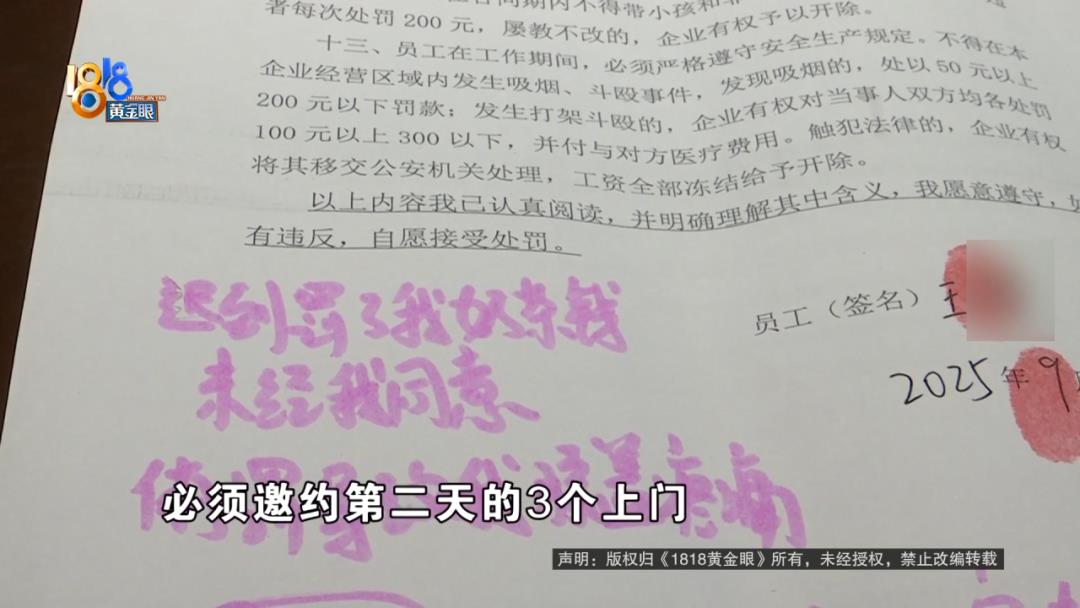 者每次处罚200元，屡教不改的，企业有权予以开除。
十三、员工在工作期间，必须严格遵守安全生产规定。不得在本
企业经营区域内发生吸烟、斗殴事件，发现吸烟的，处以50元以上
200元以下罚款；发生打架斗殴的，企业有权对当事人双方均各处罚
100元以上300以下，并付与对方医疗费用。触犯法律的，企业有权
将其移交公安机关处理，工资全部冻结给予开除。
以上内容我已认真阅读，并明确理解其中含义，我愿意遵守，如
有违反，自愿接受处罚。
员工（签名）王
2025年9
迟到罚了我好多钱
未经我同意
必须邀约第二天的3个上门
1818
黄金眼
声明：版权归《1818黄金眼》所有，未经授权，禁止改编转载